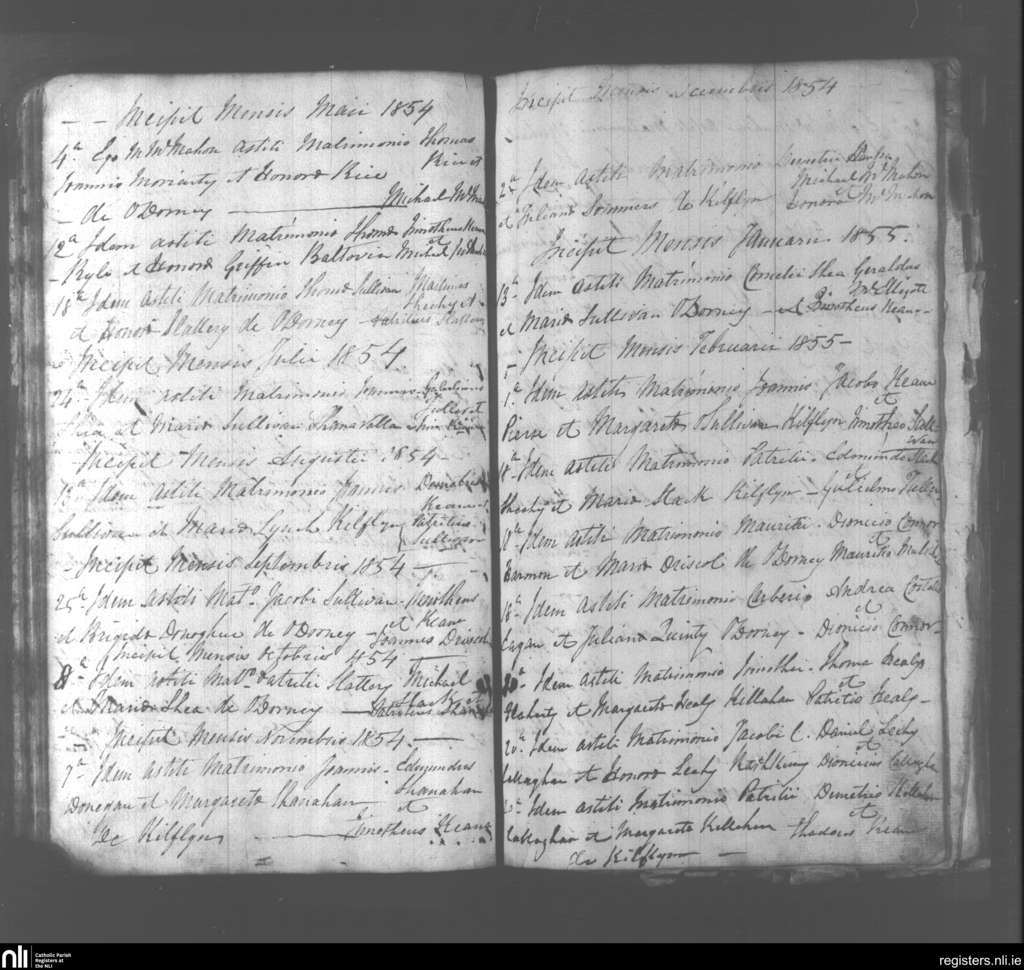 Incipit Mensis Maii 1854
4a Ego M McMahon astiti Matrimonio Thomas
Rice et
Joannis Moriarty et Honora Rice
de ODorney Michael McMa
12a Idem astiti Matrimonio Thoma Timotheus Keane
Kyle et Honora Griffin Baltovin et Michael McMahon
18a Idem astiti Matrimonio Thoma Sullivan
Sheehy et
et Honora Slattery de ODorney Patritius Slattery
Incipit Mensis Julii 1854
24a Idem astiti Matrimonio Joannis
Shea et Maria Sullivan Shanavalla
Incipit Mensis Augusti 1854
13a Idem astiti Matrimonio Joannis
Keane et
Sullivan et Maria Lynch Kilflyn Patritius
Sullivan
Incipit Mensis Septembris 1854
25a Idem astiti Mato. Jacobi Sullivan Timotheus
et Keane
et Brigida Donoghue de ODorney Joannes Driscol
Incipit Mensis Octobris 1854
8a Idem astiti Mato. Patritii Slattery Michail
Stack et
et Maria Shea de ODorney Patritius Shanahan
Incipit Mensis Novembris 1854
7a Idem astiti Matrimonio Joannis Edmundus
Shanahan
Donegan et Margareta Shanahan et
De Kilflyn Timotheus Keane
Incipit Mensis Decembris 1854
2a Idem astiti Matrimonio Demetrii Shea
Michael McMahon
et Juliana Sommers de Kilflyn Honora McMahon
Incipit Mensis Januarii 1855.
13a Idem astiti Matrimonio Cornelii Shea Geraldus
McElligott
et Maria Sullivan ODorney et Timotheus Keane
Incipit Mensis Februarii 1855
1a Idem astiti Matrimonio Joannis Jacobo Keane
et
Pierse et Margareta OSullivan Kilflyn Timotheo Sulli
van
18a Idem astiti Matrimonio Patritii Edmundo Stack
et
Sheehy et Maria Stack Kilflyn Gulielmo Tulley
18a Idem astiti Matrimonio Mauritii Dionicio Connor
et
Harmon et Maria Driscol de ODorney Mauritio
18a Idem astiti Matrimonio Andrea
et
Eagan et Juliana Quinty ODorney Dionicio Connor
20a Idem astiti Matrimonio Timothei Thoma Healy
et
Flaherty et Margareta Healy Killahan Patritio Healy
20a Idem astiti Matrimonio Jacobi C. Daniel Leehy
et
Callaghan et Honora Leehy Dionicius Callaghan
Idem astiti Matrimonio Patritii Demetrio Killahan
et
Callaghan et Margareta Killahan Thadeus Keane
De Kilflyn
nli
Catholic Parish
Registers at
the NLI
registers.nli.ie